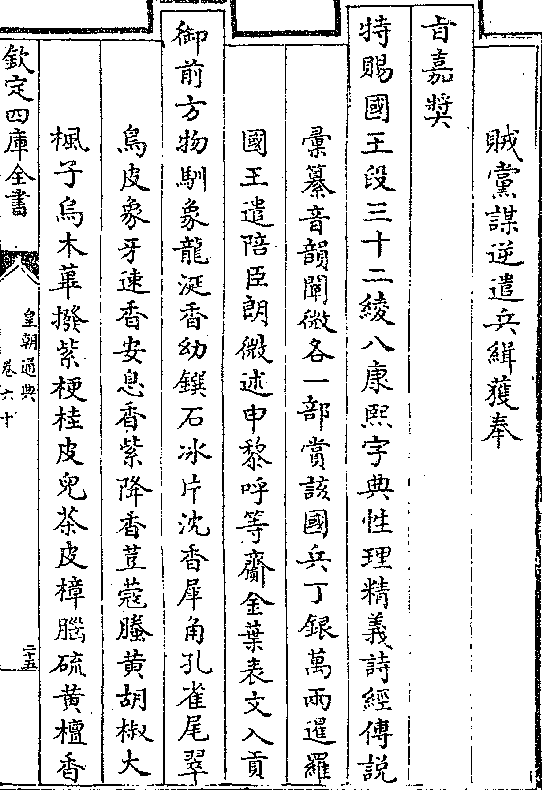 賊黨謀逆遣兵緝獲奉
㫖嘉奬
特賜國王段三十二綾八康熙字典性理精義詩經傳説
彙纂音韻闡微各一部賞該國兵丁銀萬兩暹羅
國王遣陪臣朗微述申黎呼等齎金葉表文入貢
御前方物馴象龍涎香幼鐉石冰片沈香犀角孔雀尾翠
鳥皮象牙速香安息香紫降香荳蔻螣黄胡椒大
楓子烏木蓽撥紫梗桂皮兒茶皮樟腦硫黄檀香
欽定四庫全書
皇朝通典
卷六十
二十五